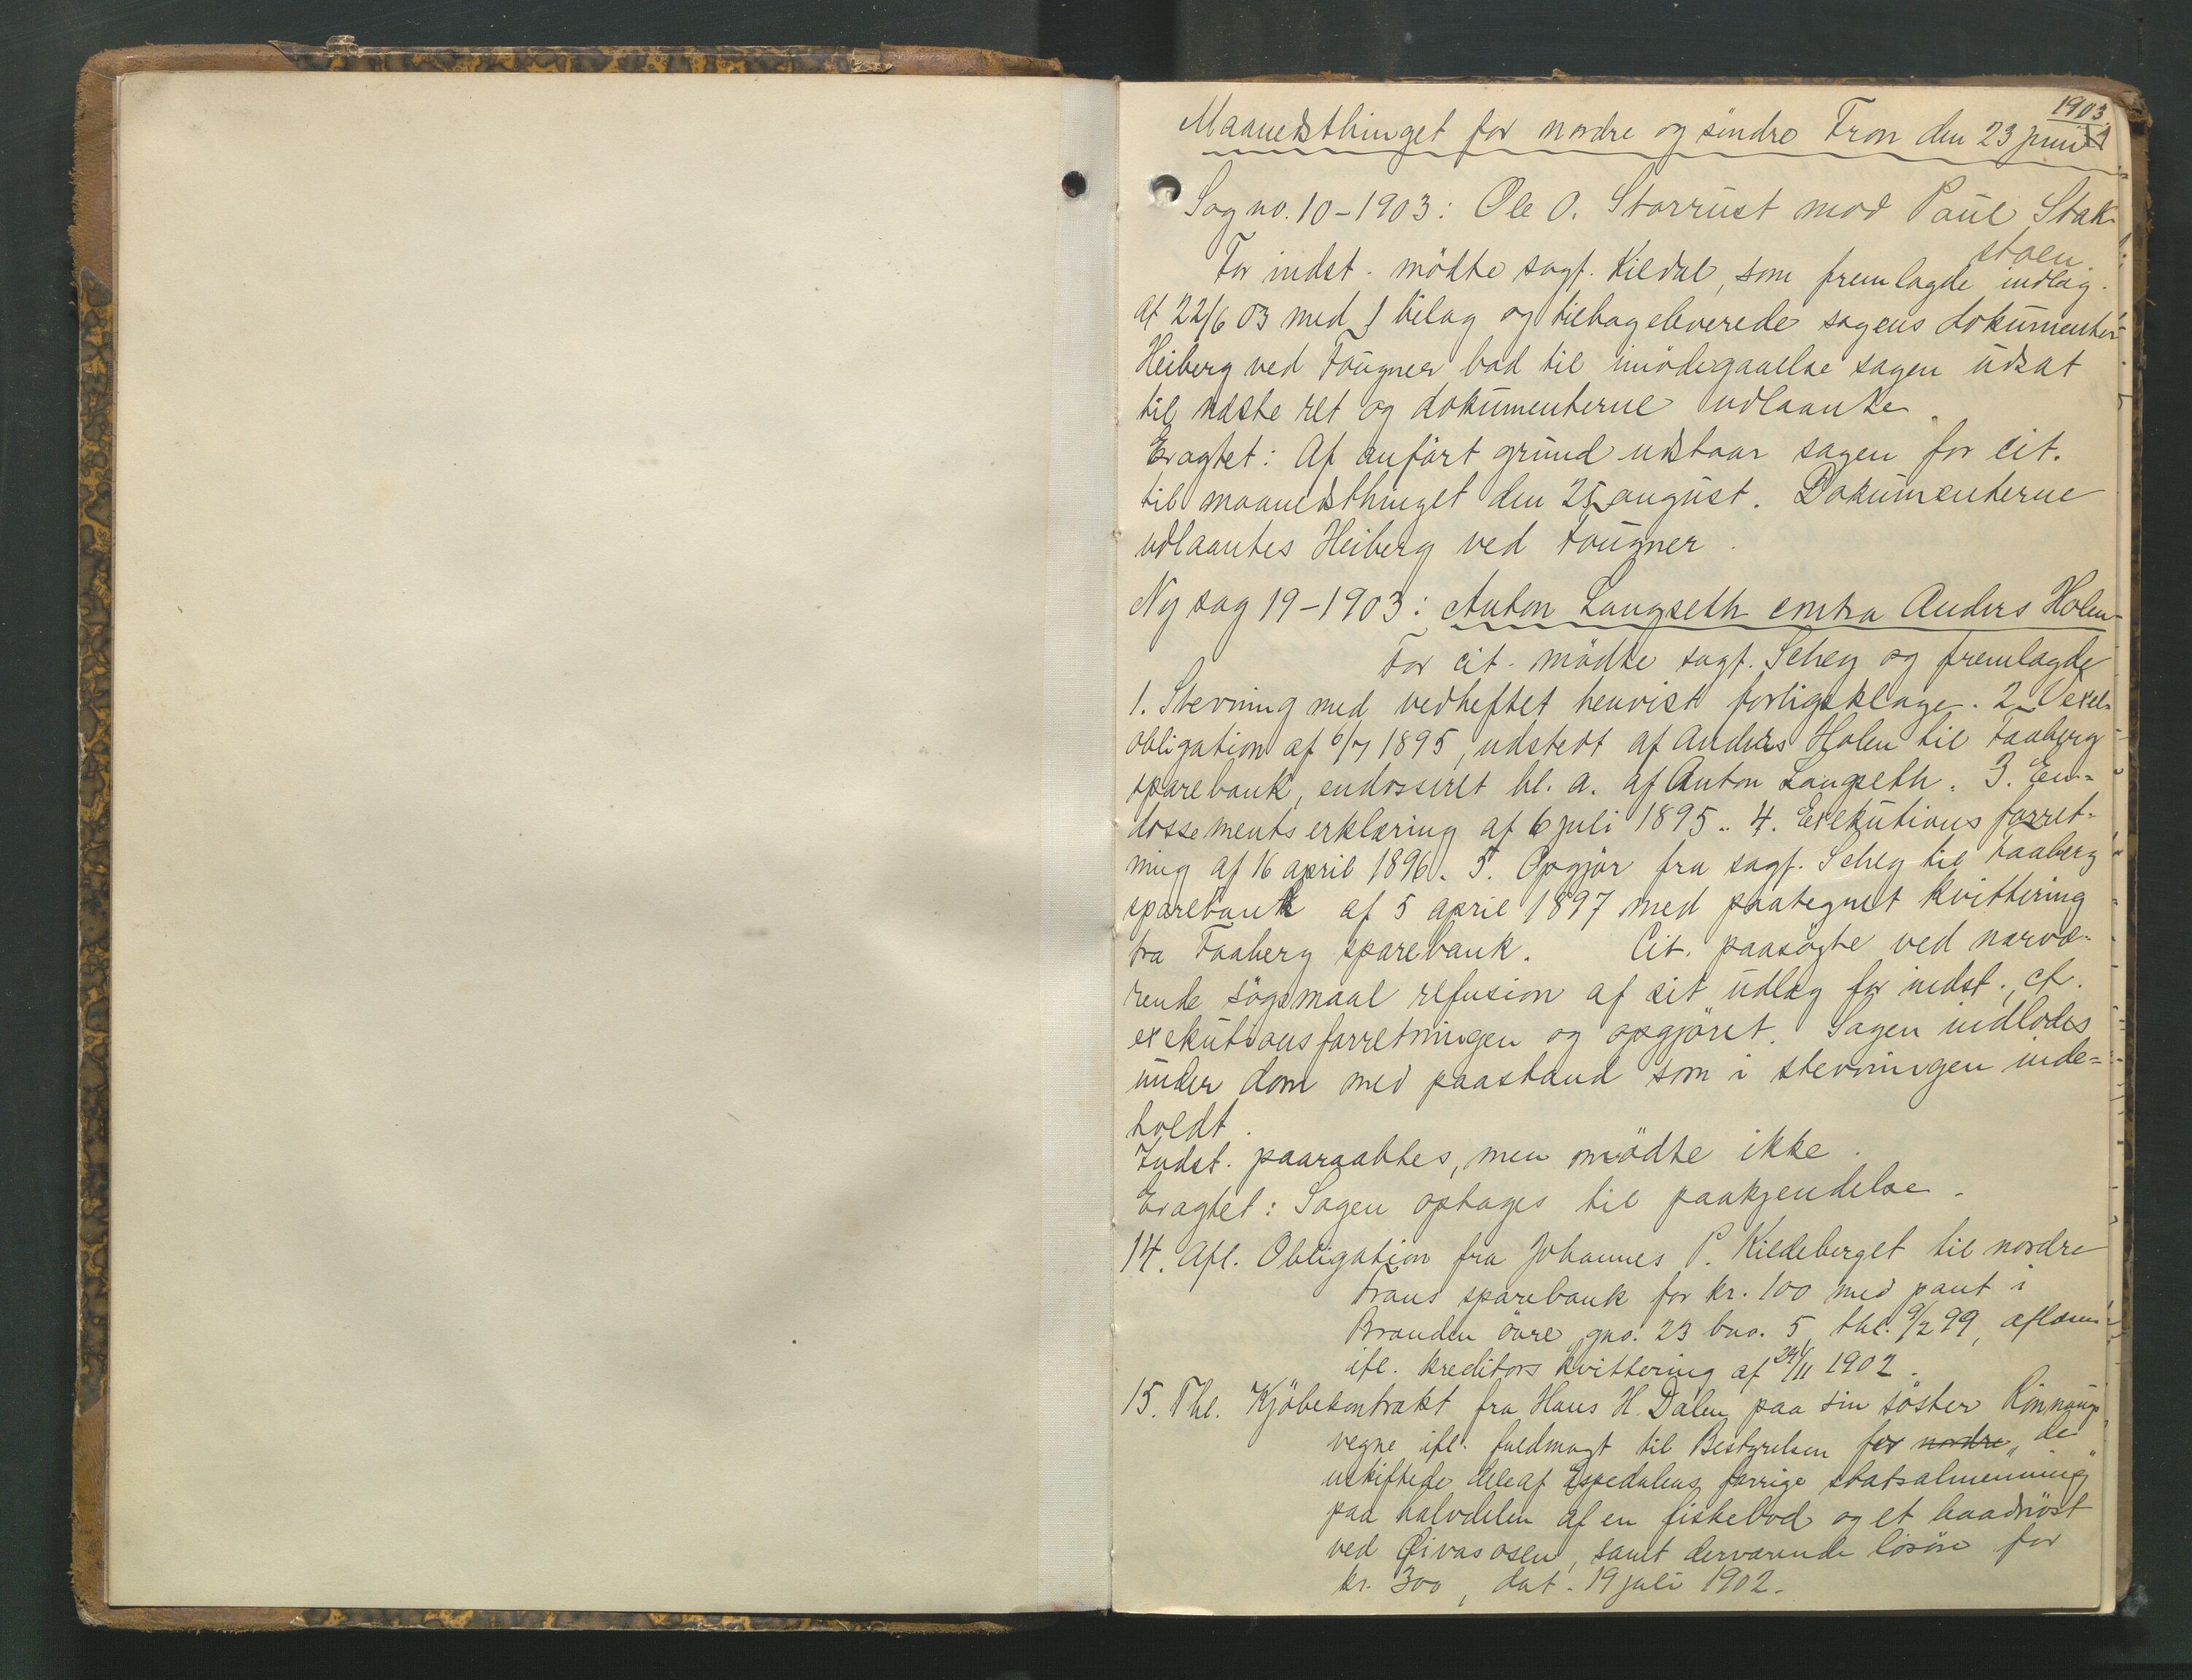 1903.
Maanedsthinget for nordre og söndre Fron den 23 juni
Sag no. 10-1903: Ole O. Storrust mod Paul Stak-
stoen.
For indst. mödte sagf. Kildal, som fremlagde indlæg
af 22/6 03 med 1 bilag og tilbageleverede sagens dokumenter
Heiberg ved Fougner bad til imödegaaelse sagen udsat
til næste ret og dokumenterne udlaante.
Eragtet: Af anfört grund udstaar sagen for cit.
til maanedsthinget den 25 august. Dokumenterne
udlaantes Heiberg ved Fougner.
Ny sag 19-1903: Anton Langseth contra Anders Holen
For cit. mödte sagf. Schey og fremlagde
1. Stevning med vedheftet henvist forligsklage. 2. Vexel-
obligation af 6/7 1895, udstedt af Anders Holen til Faaberg
sparebank, endosseret bl. a. af Anton Langseth. 3. En-
dossementserklæring af 6 juli 1895. 4. Exekutionsforret-
ning af 16 april 1896. 5. Opgjör fra sagf. Schey til Faaberg
sparebank af 5 april 1897 med paategnet kvittering
fra Faaberg sparebank. Cit. paasögte ved nærvæ-
rende sögsmaal refusion af sit udlæg for indst., cf.
exekutionsforretningen og opgjöret. Sagen indlodes
under dom med paastand som i stevningen inde-
holdt.
Indst. paaraabtes, men mödte ikke.
Eragtet: Sagen optages til paakjendelse.
14. Afl. Obligation fra Johannes P. Kildeberget til nordre
Frons sparebank for kr. 100 med pant i
Branden övre gno. 23 bno. 5, thl. 9/2 99, aflæses
ifl. kreditors kvittering af 24/11 1902.
15. Thl. Kjöbekontrakt fra Hans H. Dalen paa sin söster Rönnaugs
vegne ifl. fuldmagt til Bestyrelsen for nordre „de
uskiftede dele af Espedalens forrige statsalmenning"
paa halvdelen af en fiskebod og et baadnöst
ved Öivasosen, samt derværende lösöre for
kr. 300, dat. 19 juli 1902.